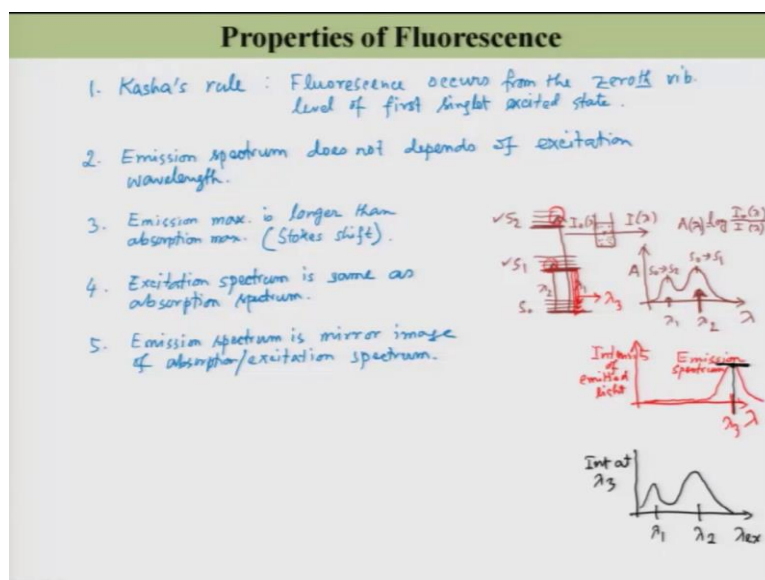 Properties of Fluorescence
1. Kasha's rule : Fluorescence occurs from the zeroth vib.
level of first singlet excited state.
2. Emission spectrum does not depends of excitation
wavelength.
3. Emission max. is longer than
absorption max. (Stokes shift).
4. Excitation spectrum is same as
absorption spectrum.
5. Emission spectrum is mirror image
of absorption/excitation spectrum.
✓S₂ I₀(λ) I(λ) A(λ)=log I₀(λ)/I(λ)
✓S₁ A S₀→S₂ S₀→S₁
λ₂ λ₁ λ₃
S₀ λ₁ λ₂ λ
Intensity
of
emitted
light
Emission
spectrum
λ₃ λ
Int at
λ₃
λ₁ λ₂ λex